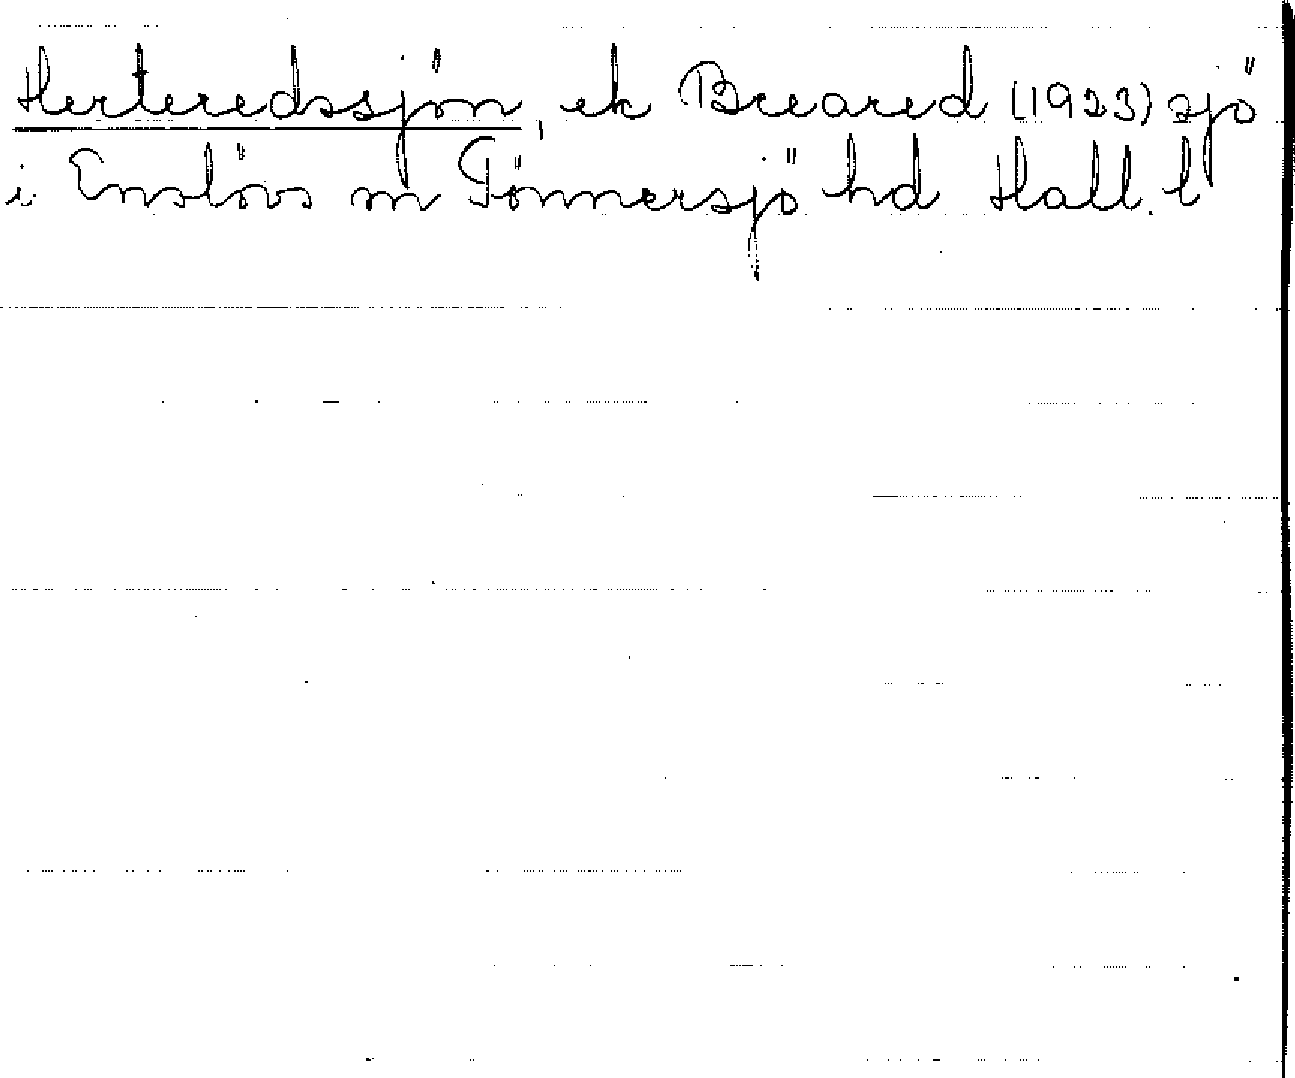 Herteredssjön, ek Breared (1923) sjö
i Enslövs sn Tönnersjö hd Hall. l